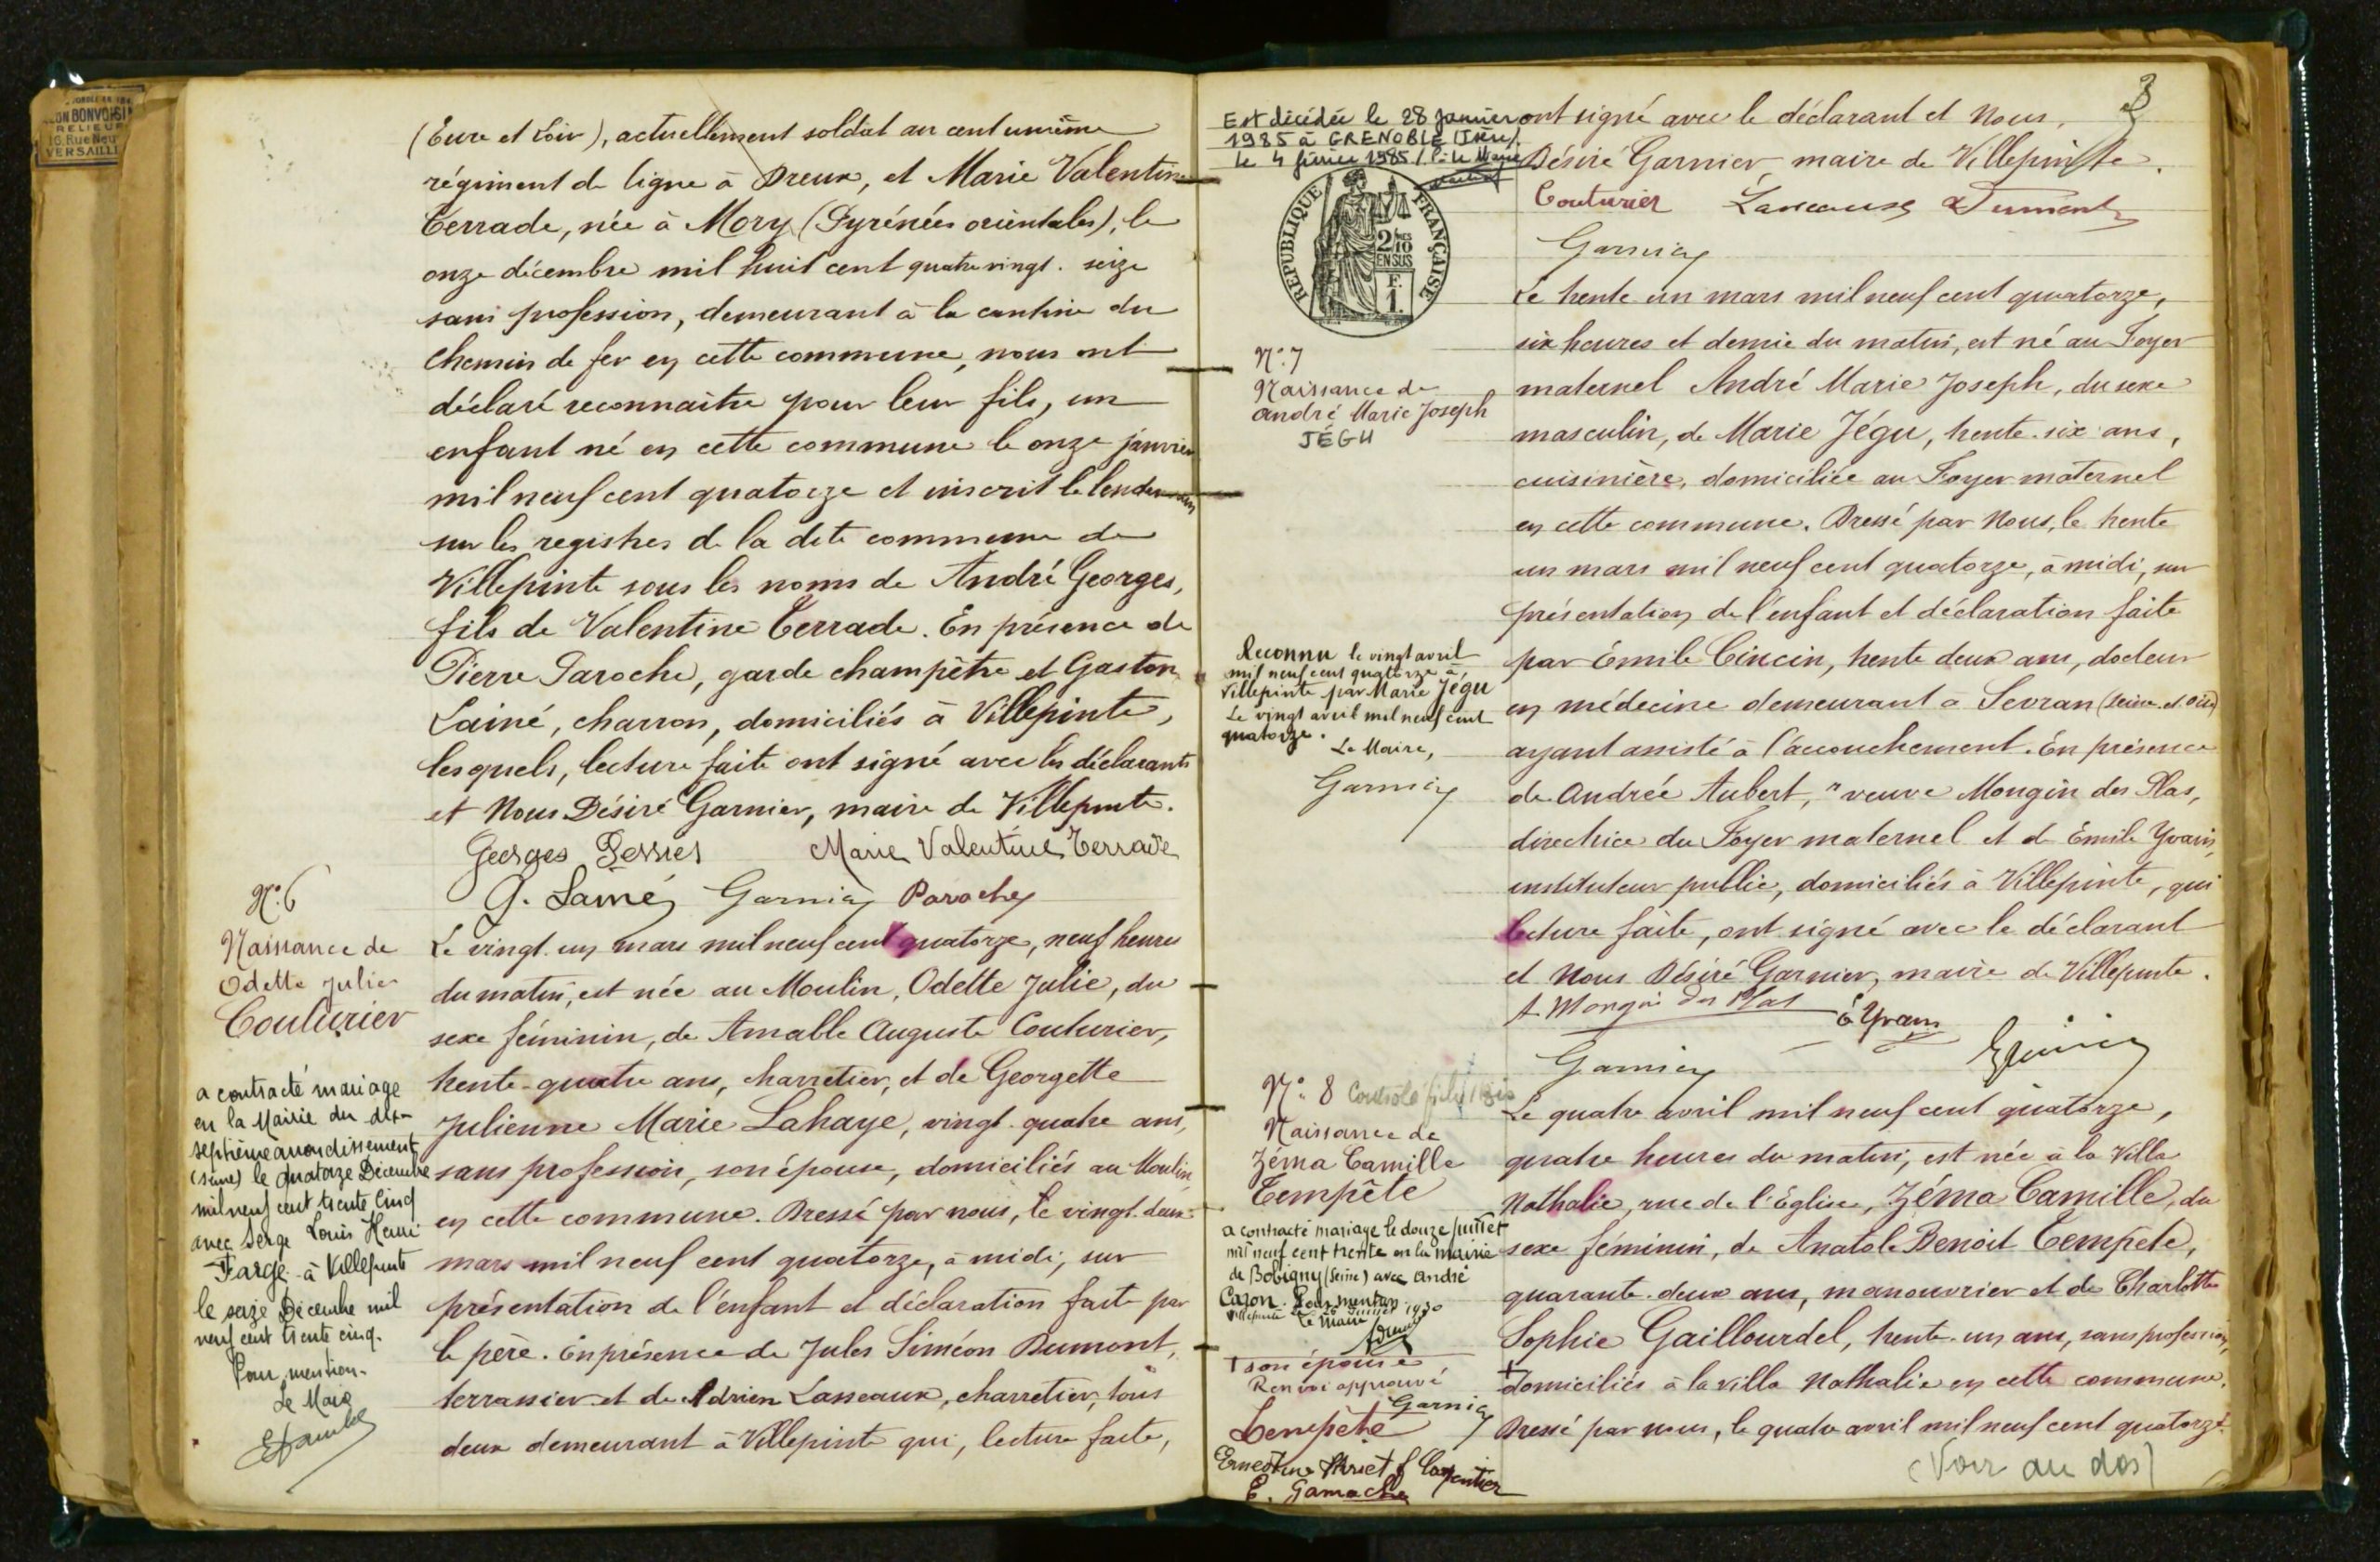 RELIEUR
16, Rue Neu
VERSAILL
(Eure et Loir), actuellement soldat au cent unième
régiment de ligne à Dreux, et Marie Valentine
Terrade, née à Mory (Pyrénées orientales), le
onze décembre mil huit cent quatre vingt. seize
sans profession, demeurant à la cantine du
chemin de fer en cette commune, nous ont
déclaré reconnaitre pour leur fils, un
enfant né en cette commune le onze janvier
mil neuf cent quatorze et inscrit le lendemain
sur les registres de la dite commune de
Villepinte sous les noms de André Georges,
fils de Valentine Terrade. En présence de
Pierre Paroche, garde champêtre et Gaston
Lainé, charron, domiciliés à Villepinte,
lesquels, lecture faite ont signé avec les déclarants
et Nous Désiré Garnier, maire de Villepinte.
Georges Marie Valentine Terrade
G. Lainé Garnier Paroche
N° 6
Naissance de
Odette Julie
Couturier
a contracté mariage
en la Mairie du dix-
septième arrondissement
(Seine) le quatorze Décembre
mil neuf cent trente cinq
avec Serge Louis Henri
Farge à Villepinte
le seize Décembre mil
neuf cent trente cinq.
Pour mention.
Le Maire
Le vingt. un mars mil neuf cent quatorze, neuf heures
du matin, est née au Moulin, Odette Julie, du
sexe féminin, de Amable Auguste Couturier,
trente-quatre ans, charretier, et de Georgette
Julienne Marie Lahaye, vingt. quatre ans,
sans profession, son épouse, domiciliés au Moulin
en cette commune. Dressé par nous, le vingt. deux
mars mil neuf cent quatorze, à midi, sur
présentation de l'enfant et déclaration faite par
le père. En présence de Jules Siméon Dumont,
terrassier et de Adrien Lasseaux, charretier, tous
deux demeurant à Villepinte qui, lecture faite,
3
Est décédée le 28 janvier
1985 à GRENOBLE (Isère).
le 4 février 1985 / P. le Maire
ont signé avec le déclarant et Nous,
Désiré Garnier, maire de Villepinte.
Couturier Lasseaux Dumont
Garnier
RÉPUBLIQUE FRANÇAISE
2/10
EN SUS
F.
1.
N° 7
Naissance de
André Marie Joseph
JÉGU
Reconnu le vingt avril
mil neuf cent quatorze à
Villepinte par Marie Jégu
Le vingt avril mil neuf cent
quatorze.
Le Maire,
Garnier
Le trente un mars mil neuf cent quatorze,
six heures et demie du matin, est né au Foyer
maternel André Marie Joseph, du sexe
masculin, de Marie Jégu, trente. six ans,
cuisinière, domiciliée au Foyer maternel
en cette commune. Dressé par Nous, le trente
un mars mil neuf cent quatorze, à midi, sur
présentation de l'enfant et déclaration faite
par Émile Cincin, trente deux ans, docteur
en médecine demeurant à Sevran (Seine. et. Oise)
ayant assisté à l'accouchement. En présence
de Andrée Aubert, veuve Mongin des Plas,
directrice du Foyer maternel et de Émile Yvain,
instituteur public, domiciliés à Villepinte, qui
lecture faite, ont signé avec le déclarant
et Nous Désiré Garnier, maire de Villepinte.
A. Mongin des Plas É Yvain
Garnier
N° 8 Contrôlé
Naissance de
Zéma Camille
Tempête
a contracté mariage le douze juillet
mil neuf cent trente en la mairie
de Bobigny (Seine) avec André
Cazon. Pour mention
Villepinte le juillet 1930
Le Maire
† son épouse,
Renvoi approuvé
Garnier
Tempête
Ernestine
E. Gamache
Le quatre avril mil neuf cent quatorze,
quatre heures du matin, est née à la Villa
Nathalie, rue de l'Église, Zéma Camille, du
sexe féminin, de Anatole Benoit Tempête,
quarante. deux ans, manouvrier et de Charlotte
Sophie Gaillourdel, trente. un ans, sans profession,
†domiciliés à la villa Nathalie en cette commune.
Dressé par nous, le quatre avril mil neuf cent quatorze
(Voir au dos)